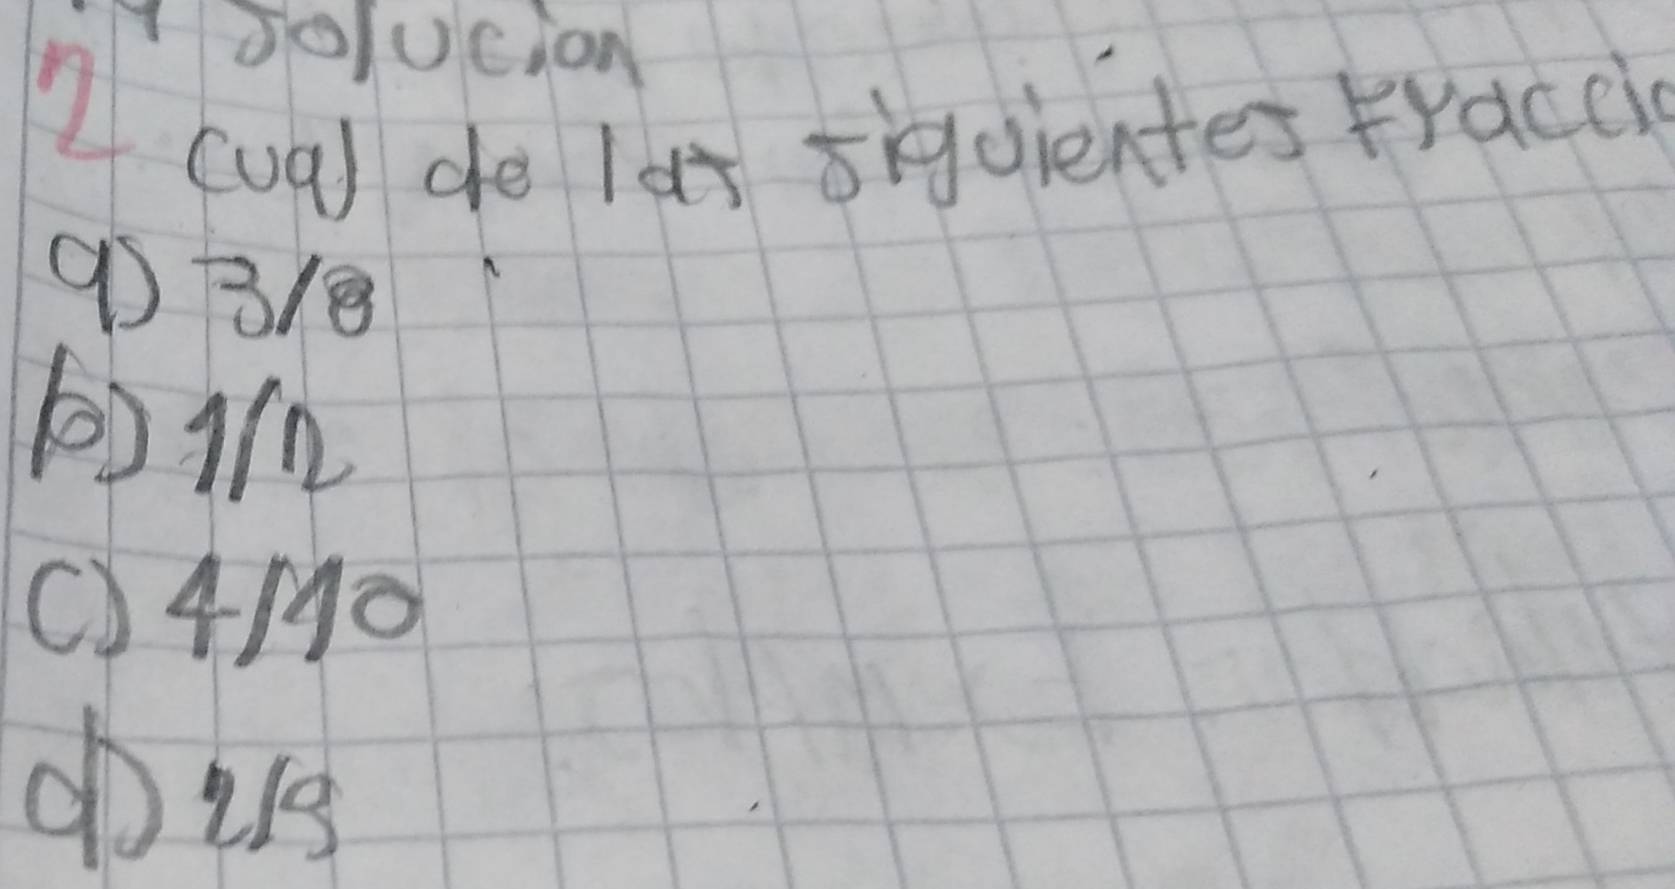 solucion
2 cual de las siguientes fraccio
a) 3/8
b) 1/2
c) 4/10
d) 2/9